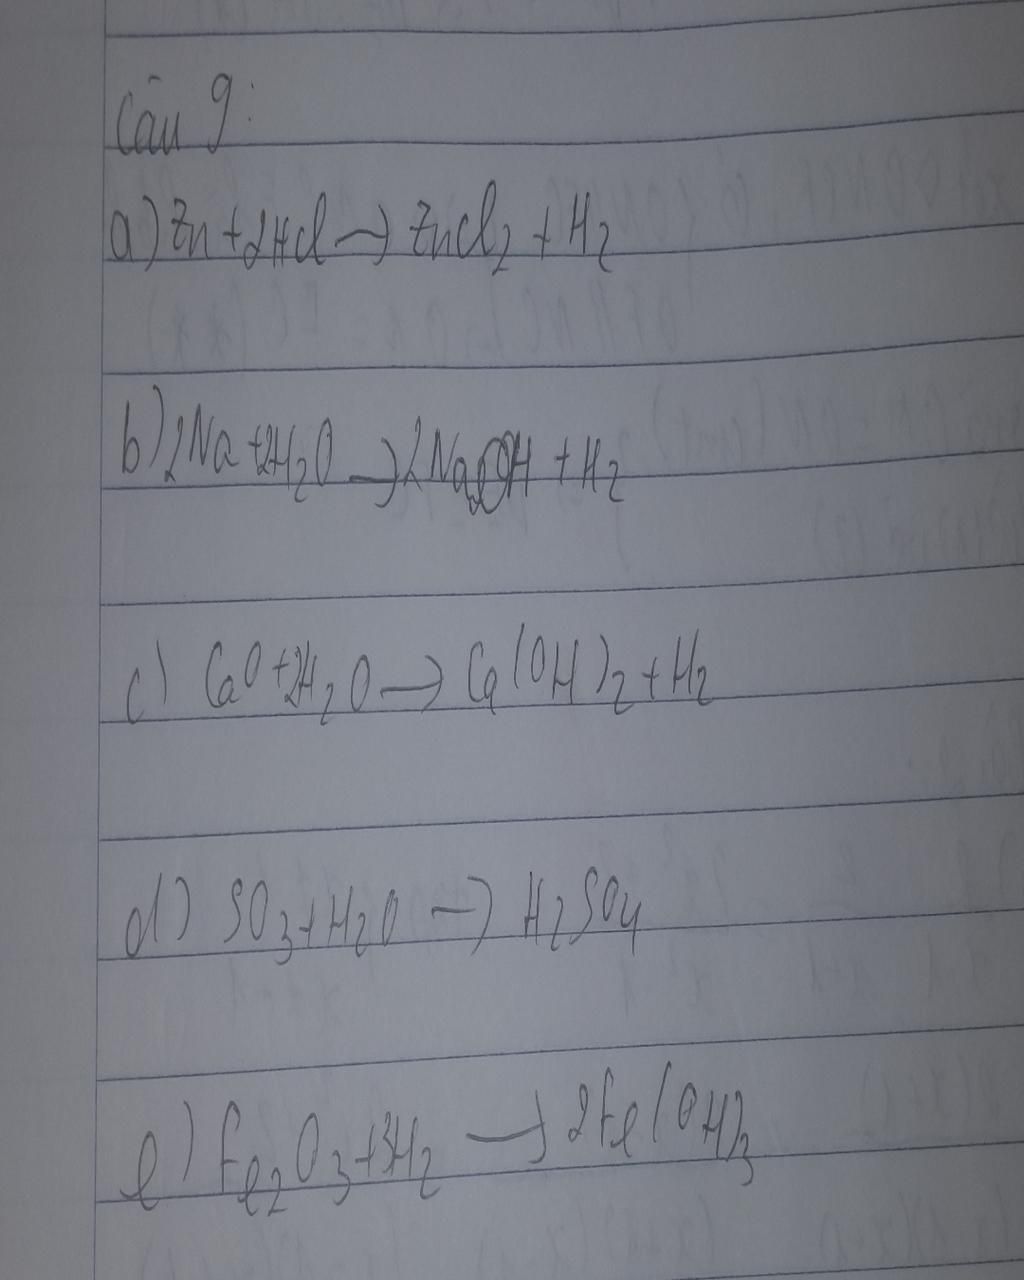 Câu 9:
a) Zn + 2HCl → ZnCl₂ + H₂
b) 2Na + 2H₂O → 2NaOH + H₂
c) CaO + 2H₂O → Ca(OH)₂ + H₂
d) SO₃ + H₂O → H₂SO₄
e) Fe₂O₃ + 3H₂ → 2Fe(OH)₃